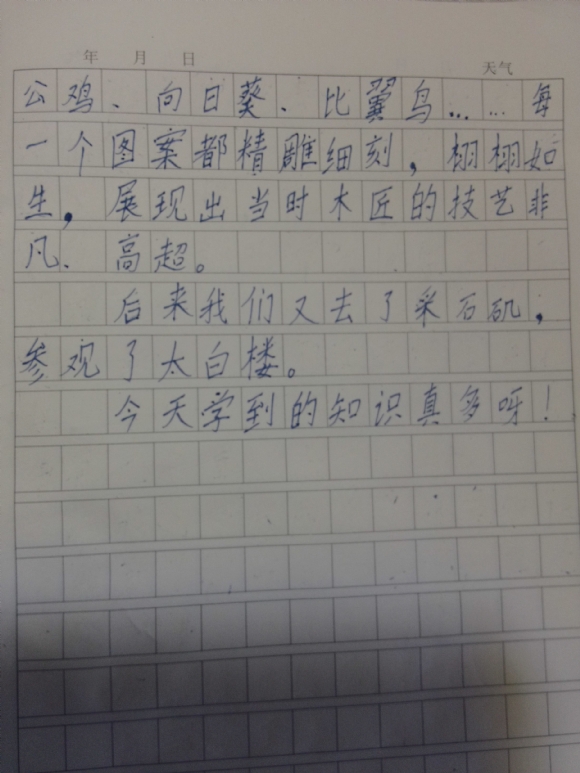 年 月 日 天气
公鸡、向日葵、比翼鸟……每
一个图案都精雕细刻，栩栩如
生，展现出当时木匠的技艺非
凡、高超。
后来我们又去了采石矶，
参观了太白楼。
今天学到的知识真多呀！